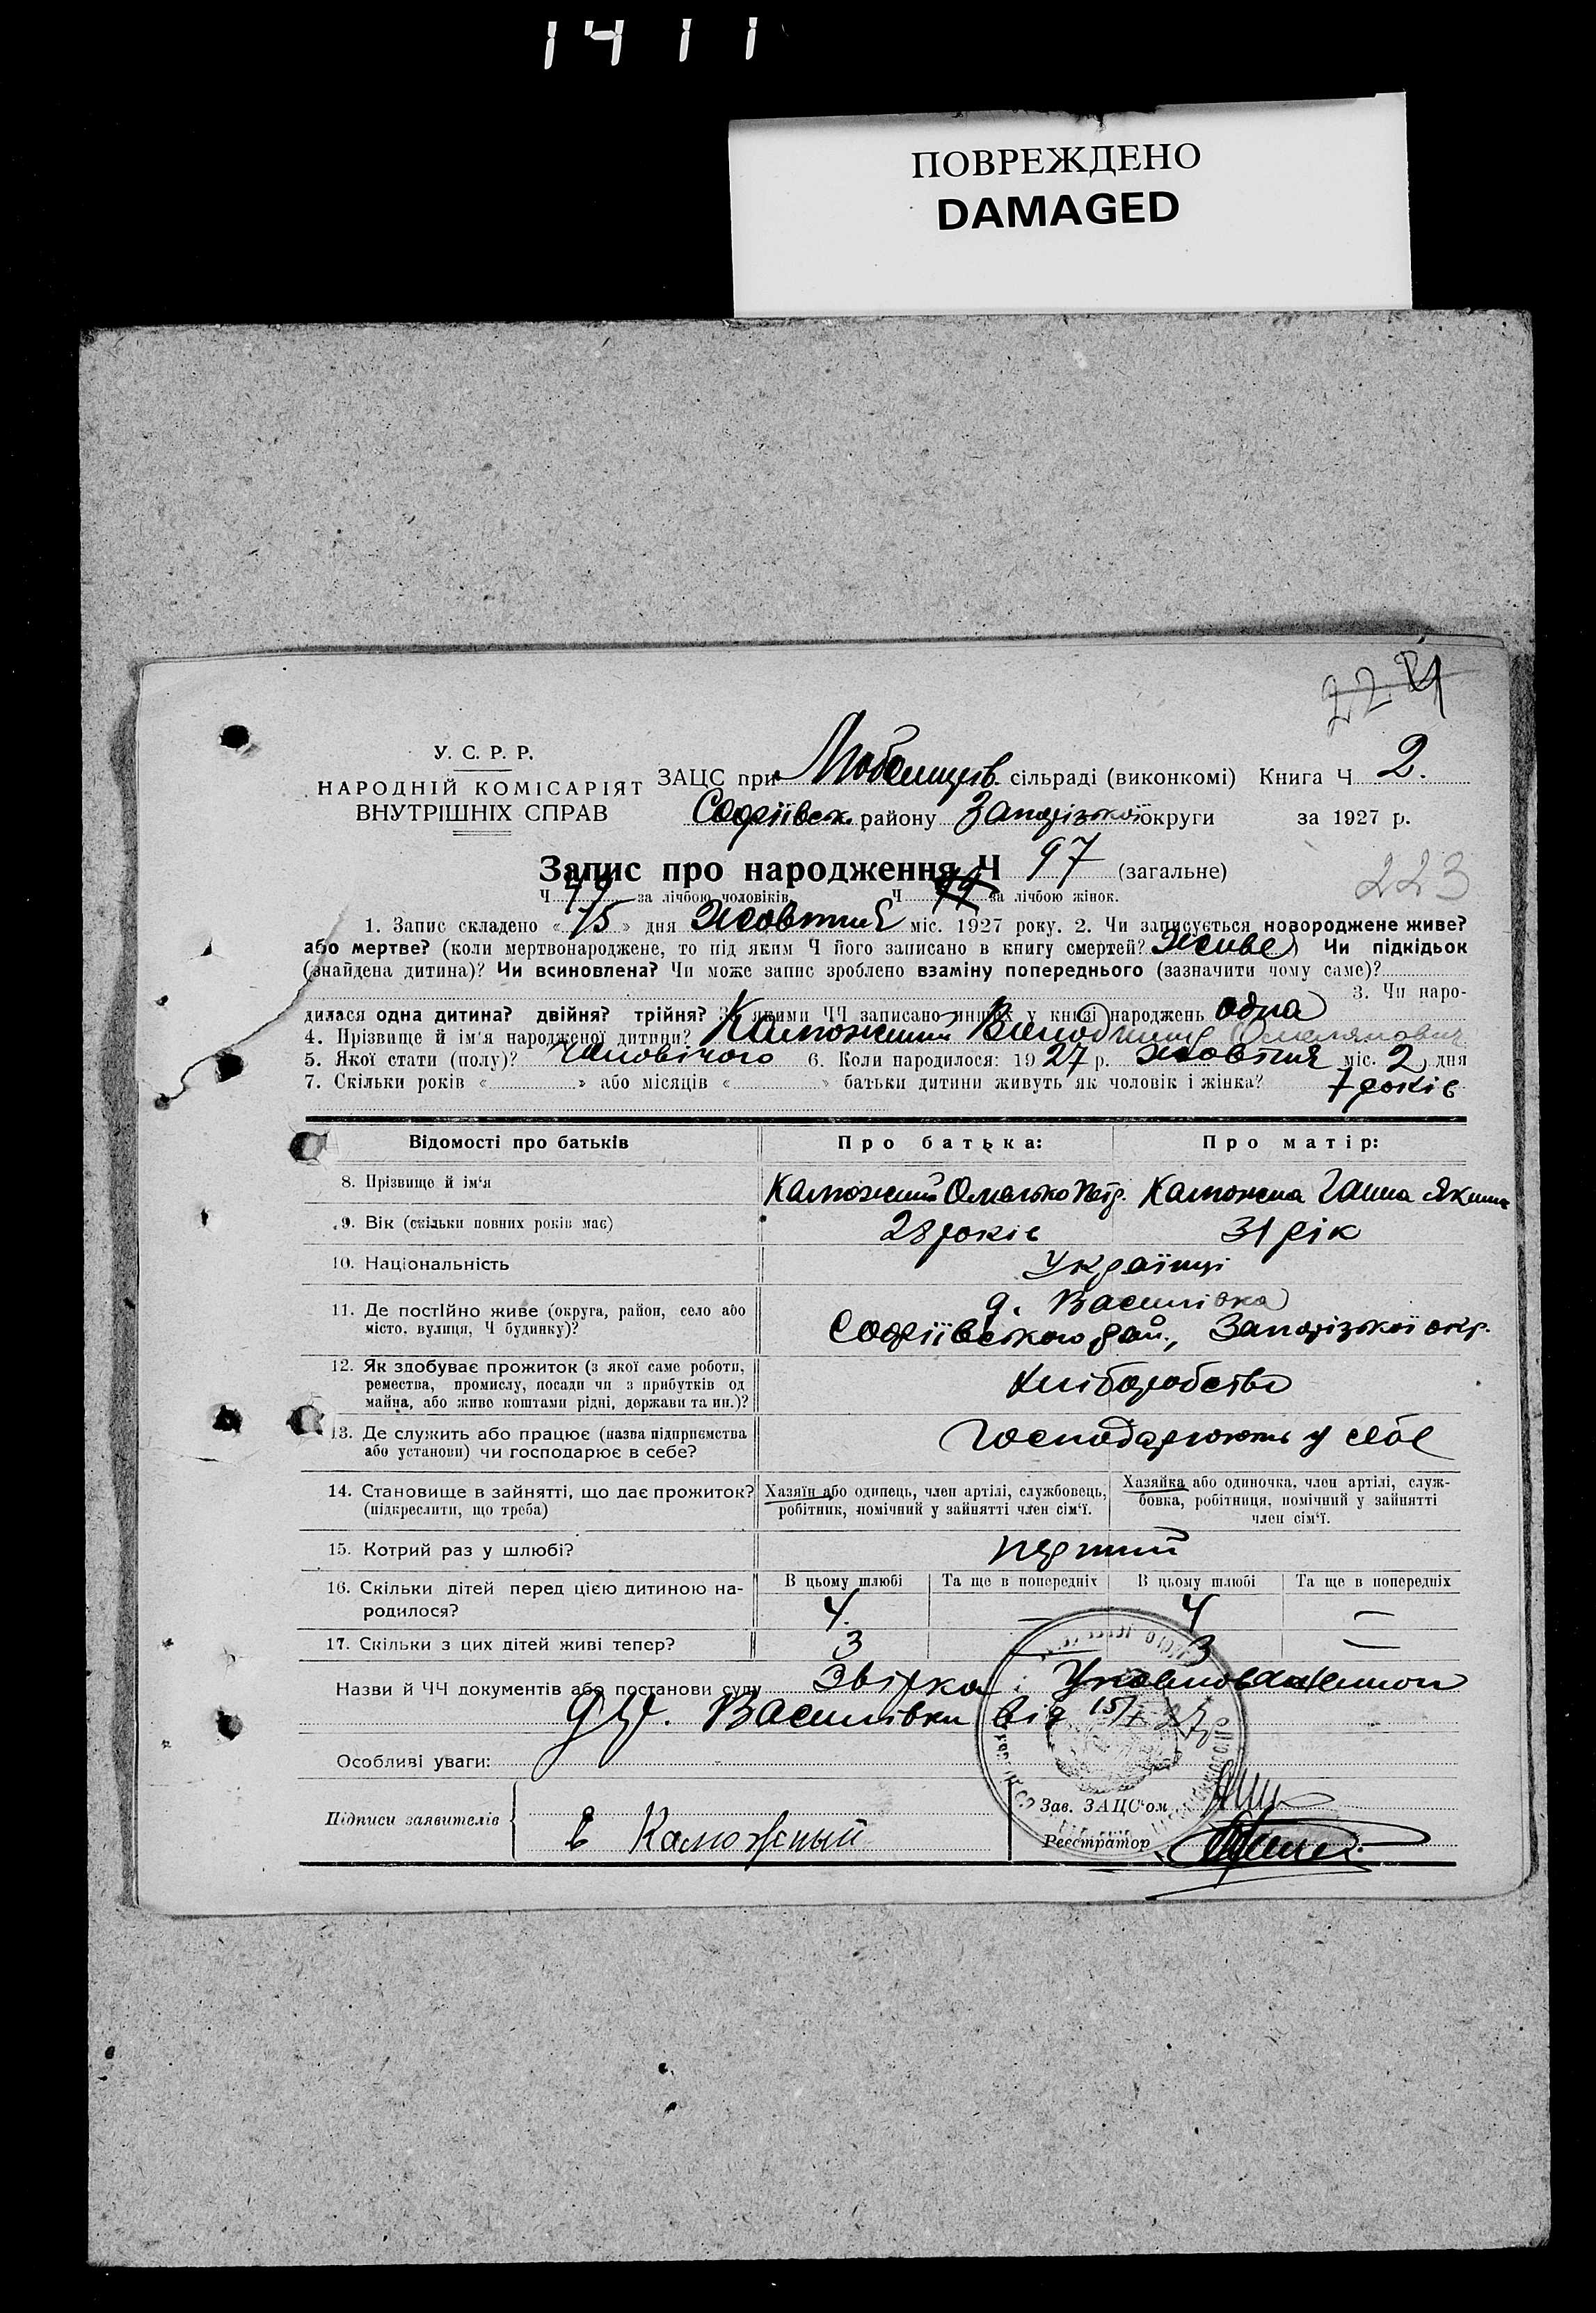 1411
ПОВРЕЖДЕНО
DAMAGED
223
У. С. Р. Р.
НАРОДНІЙ КОМІСАРІЯТ
ВНУТРІШНІХ СПРАВ
ЗАЦС при Любимів. сільраді (виконкомі) Книга Ч 2.
Софіївськ. району Запорізької округи за 1927 р.
Запис про народження Ч 97 (загальне)
Ч 49 за лічбою чоловіків Ч за лічбою жінок.
1. Запис складено « 15 » дня Жовтня міс. 1927 року. 2. Чи записується новороджене живе?
або мертве? (коли мертвонароджене, то під яким Ч його записано в книгу смертей? Живе) Чи підкідьок
(знайдена дитина)? Чи всиновлена? Чи може запис зроблено взаміну попереднього (зазначити чому саме)?
3. Чи наро-
дилася одна дитина? двійня? трійня? За якими ЧЧ записано инших у книзі народжень одна
4. Прізвище й ім'я народженої дитини? Калюжний Володимир Омелянович
5. Якої стати (полу)? Чоловічого 6. Коли народилося: 1927 р. жовтня міс. 2 дня
7. Скільки років « » або місяців « » батьки дитини живуть як чоловік і жінка? 7 років
Відомості про батьків Про батька: Про матір:
8. Прізвище й ім'я Калюжний Омелько Петр. Калюжна Ганна Яким
9. Вік (скільки повних років має) 28 років 31 рік
10. Національність Українці
11. Де постійно живе (округа, район, село або
місто, вулиця, Ч будинку)?
д. Василівка
Софіївського рай., Запорізької окр.
12. Як здобуває прожиток (з якої саме роботи,
ремества, промислу, посади чи з прибутків од
майна, або живе коштами рідні, держави та ин.)?
Хліборобство
13. Де служить або працює (назва підприємства
або установи) чи господарює в себе?
Господарюють у себе
14. Становище в зайнятті, що дає прожиток?
(підкреслити, що треба)
Хазяїн або одинець, член артілі, службовець,
робітник, помічний у зайнятті член сім'ї.
Хазяйка або одиночка, член артілі, служ-
бовка, робітниця, помічний у зайнятті
член сім'ї.
15. Котрий раз у шлюбі? перший
16. Скільки дітей перед цією дитиною на-
родилося?
В цьому шлюбі Та ще в попередніх В цьому шлюбі Та ще в попередніх
4. — 4 —
17. Скільки з цих дітей живі тепер? 3 — 3 —
Назви й ЧЧ документів або постанови суду Звірка: Уповноваженного
д. Василівки від 15/X 27
Особливі уваги:
Підписи заявителів Калюжный
Зав. ЗАЦС'ом
Реєстратор